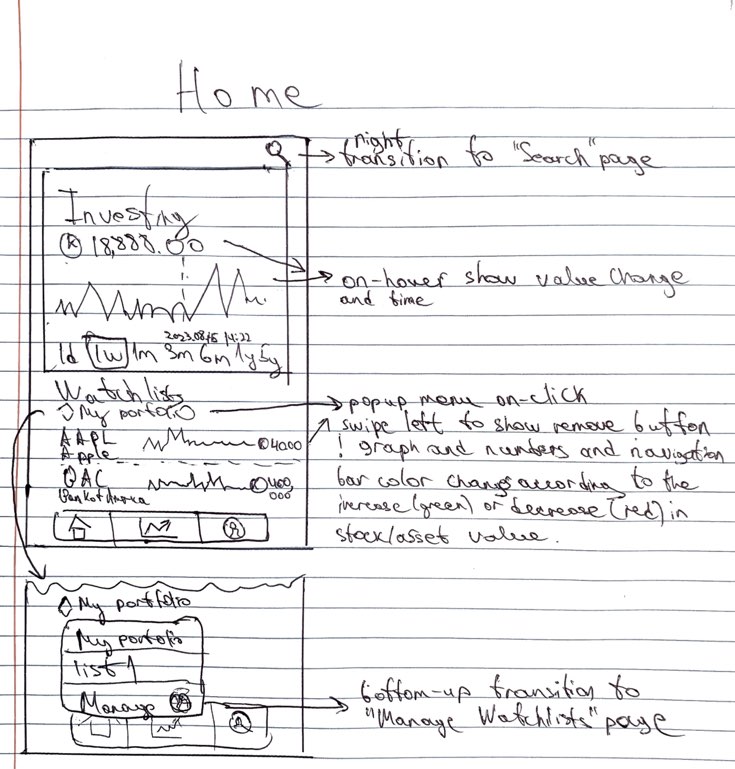 Home
right
transition to "Search" page
Investing
18,888.00
on-hover show value change
and time
2023.08.15 14:22
1d 1w 1m 3m 6m 1y 5y
Watchlists
My portfolio
popup menu on-click
swipe left to show remove button
AAPL 4000
Apple
! graph and numbers and navigation
bar color changes according to the
BAC 400,000
Bank of America
increase (green) or decrease (red) in
stock/asset value.
My portfolio
My portofolio
list 1
Manage
bottom-up transition to
"Manage Watchlists" page